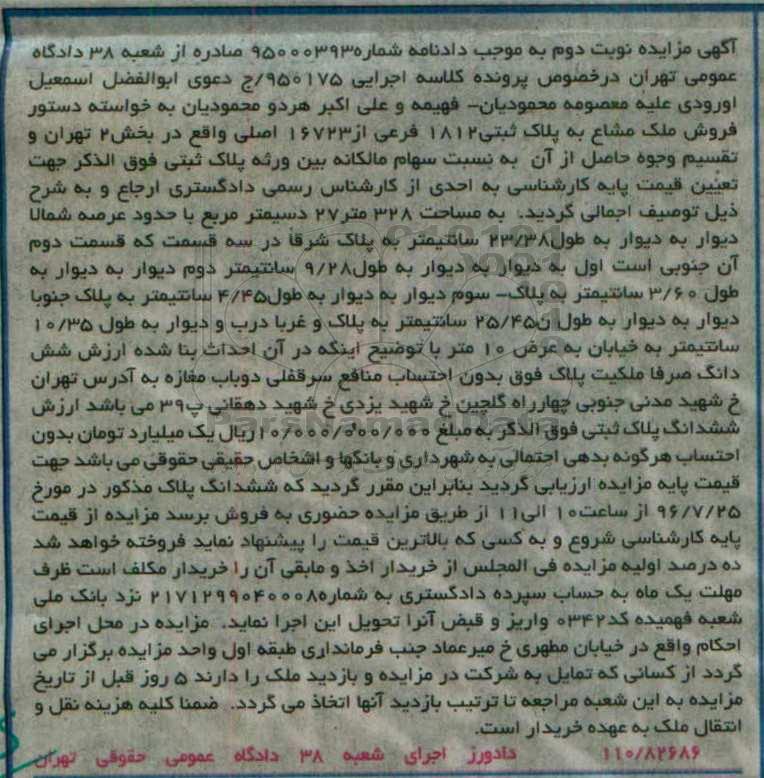 آگهی مزایده نوبت دوم به موجب دادنامه شماره۹۵۰۰۰۳۹۳ صادره از شعبه ۳۸ دادگاه
عمومی تهران درخصوص پرونده کلاسه اجرایی ۹۵۰۱۷۵/ج دعوی ابوالفضل اسمعیل
اورودی علیه معصومه محمودیان- فهیمه و علی اکبر هردو محمودیان به خواسته دستور
فروش ملک مشاع به پلاک ثبتی۱۸۱۲ فرعی از۱۶۷۲۳ اصلی واقع در بخش۲ تهران و
تقسیم وجوه حاصل از آن به نسبت سهام مالکانه بین ورثه پلاک ثبتی فوق الذکر جهت
تعیین قیمت پایه کارشناسی به احدی از کارشناس رسمی دادگستری ارجاع و به شرح
ذیل توصیف اجمالی گردید. به مساحت ۳۲۸ متر۲۷ دسیمتر مربع با حدود عرصه شمالا
دیوار به دیوار به طول۲۳/۳۸ سانتیمتر به پلاک شرقا در سه قسمت که قسمت دوم
آن جنوبی است اول به دیوار به دیوار به طول۹/۲۸ سانتیمتر دوم دیوار به دیوار به
طول ۳/۶۰ سانتیمتر به پلاک- سوم دیوار به دیوار به طول۴/۴۵ سانتیمتر به پلاک جنوبا
دیوار به دیوار به طول ن۲۵/۴۵ سانتیمتر به پلاک و غربا درب و دیوار به طول ۱۰/۳۵
سانتیمتر به خیابان به عرض ۱۰ متر با توضیح اینکه در آن احداث بنا شده ارزش شش
دانگ صرفا ملکیت پلاک فوق بدون احتساب منافع سرقفلی دوباب مغازه به آدرس تهران
خ شهید مدنی جنوبی چهارراه گلچین خ شهید یزدی خ شهید دهقانی پ۳۹ می باشد ارزش
ششدانگ پلاک ثبتی فوق الذکر به مبلغ ۱۰/۰۰۰/۰۰۰/۰۰۰ ریال یک میلیارد تومان بدون
احتساب هرگونه بدهی احتمالی به شهرداری و بانکها و اشخاص حقیقی حقوقی می باشد جهت
قیمت پایه مزایده ارزیابی گردید بنابراین مقرر گردید که ششدانگ پلاک مذکور در مورخ
۹۶/۷/۲۵ از ساعت۱۰ الی۱۱ از طریق مزایده حضوری به فروش برسد مزایده از قیمت
پایه کارشناسی شروع و به کسی که بالاترین قیمت را پیشنهاد نماید فروخته خواهد شد
ده درصد اولیه مزایده فی المجلس از خریدار اخذ و مابقی آن را خریدار مکلف است ظرف
مهلت یک ماه به حساب سپرده دادگستری به شماره۲۱۷۱۲۹۹۰۴۰۰۰۸ نزد بانک ملی
شعبه فهمیده کد۰۳۴۲ واریز و قبض آنرا تحویل این اجرا نماید. مزایده در محل اجرای
احکام واقع در خیابان مطهری خ میرعماد جنب فرمانداری طبقه اول واحد مزایده برگزار می
گردد از کسانی که تمایل به شرکت در مزایده و بازدید ملک را دارند ۵ روز قبل از تاریخ
مزایده به این شعبه مراجعه تا ترتیب بازدید آنها اتخاذ می گردد. ضمنا کلیه هزینه نقل و
انتقال ملک به عهده خریدار است.
۱۱۰/۸۲۶۸۶ دادورز اجرای شعبه ۳۸ دادگاه عمومی حقوقی تهران